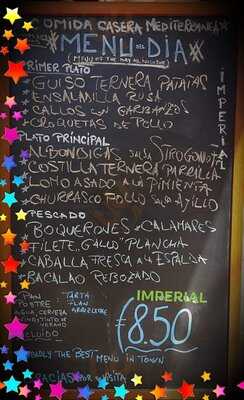 COMIDA CASERA MEDITERRANEA
MENU DEL DIA
MENU OF THE DAY
IMPERIAL
PRIMER PLATO
GUISO TERNERA PATATAS
ENSALAILLA RUSA
CALLOS CON GARBANZOS
CROQUETAS DE POLLO
PLATO PRINCIPAL
ALBONDIGAS SALSA STROGONOFF
COSTILLA TERNERA PARRILLA
LOMO ASADO A LA PIMIENTA
CHURRASCO POLLO SALSA AJILLO
PESCADO
BOQUERONES CALAMARES
FILETE "GALLO" PLANCHA
CABALLA FRESCA A LA ESPALDA
BACALAO REBOZADO
PAN
POSTRE
TARTA
FLAN
AGUA, CERVEZA
VINO, TINTO DE
VERANO
IMPERIAL
€ 8.50
THE BEST MENU IN TOWN
GRACIAS POR SU VISITA